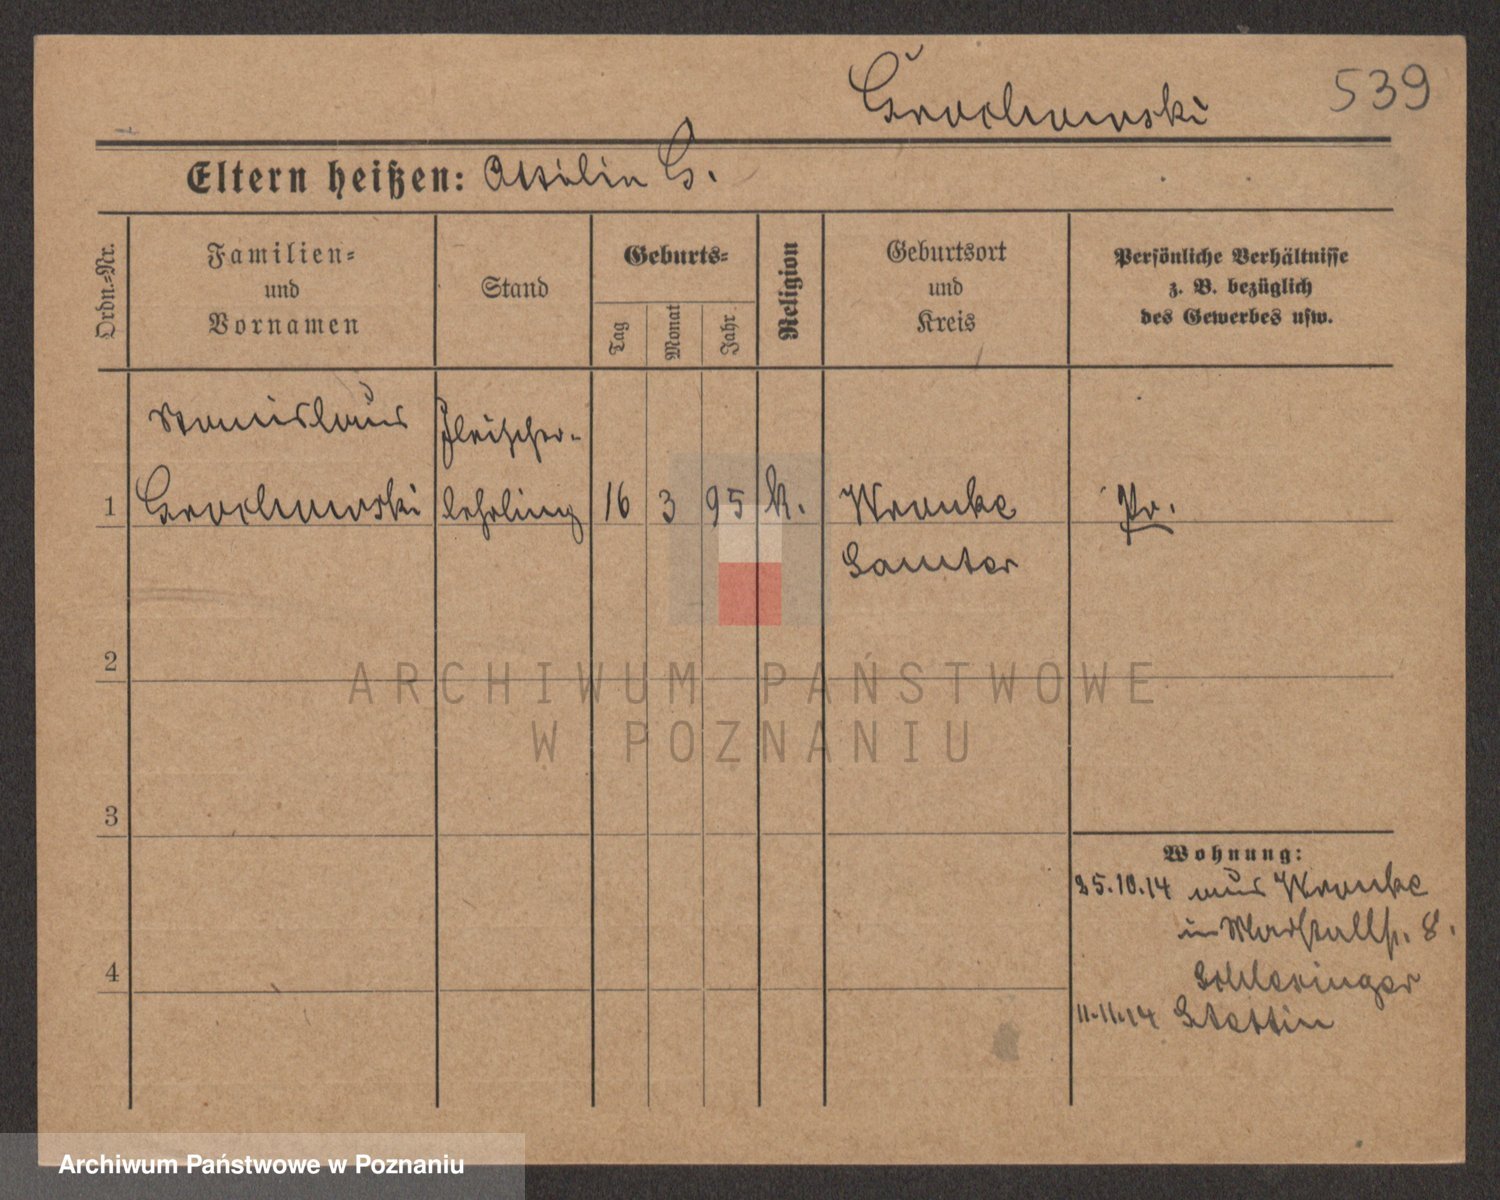 Grochowski 539
Eltern heißen: Ottilia G.
Ordn.-Nr.
Familien-
und
Vornamen
Stand
Geburts-
Tag
Monat
Jahr
Religion
Geburtsort
und
Kreis
Persönliche Verhältnisse
z. B. bezüglich
des Gewerbes usw.
Stanislaus Fleischer-
1 Grochowski lehrling 16 3 95 k. Wronke Pr.
Samter
2
ARCHIWUM PAŃSTWOWE
W POZNANIU
3
Wohnung:
25.10.14 aus Wronke
in Marstallstr. 8.
Schlesinger
4
11.11.14 Stettin
Archiwum Państwowe w Poznaniu